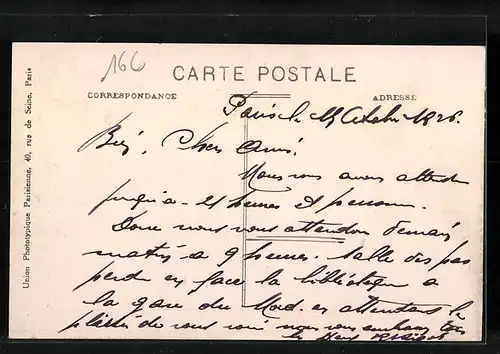 166
CARTE POSTALE
CORRESPONDANCE
ADRESSE
Union Phototypique Parisienne, 40, rue de Seine, Paris
Paris le 15 Octobre 1926.
Chers Amis.
Nous vous avons attendu
jusqu'a 21 heures et personne.
Donc nous vous attendons demain
matin a 9 heures. Salle des pas
perdu en face la bibliotheque a
la gare du Nord. en attendant le
plaisir de vous voir nous vous embrassons tous